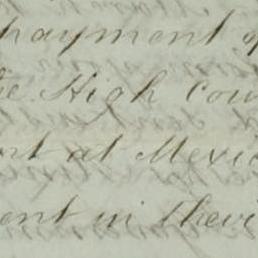 payment of
e High cou
nt at Mexic
ent in thevi